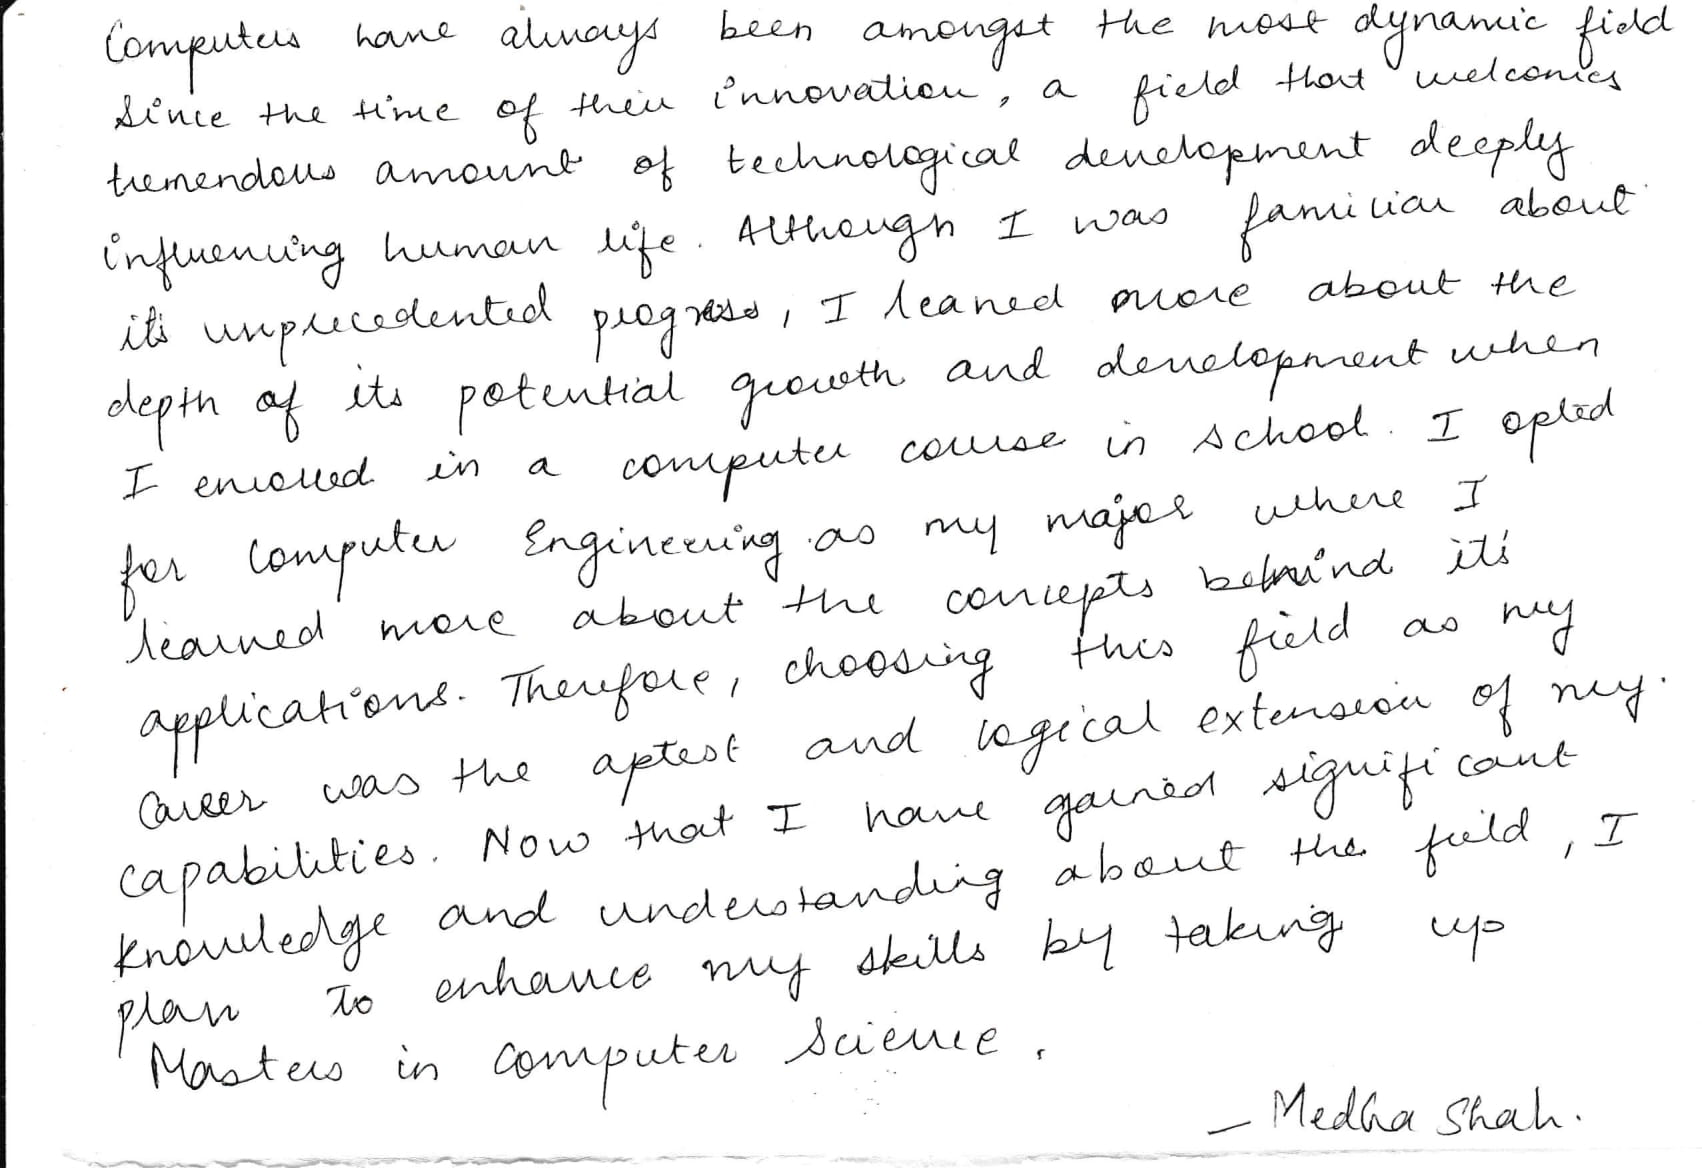 Computers have always been amongst the most dynamic field
Since the time of their innovation, a field that welcomes
tremendous amount of technological development deeply
influencing human life. Although I was familiar about
it's unprecedented progress, I leaned more about the
depth of its potential growth and development when
I enrolled in a computer course in school. I opted
for Computer Engineering as my major where I
learned more about the concepts behind it's
applications. Therefore, choosing this field as my
Career was the aptest and logical extension of my
capabilities. Now that I have gained significant
knowledge and understanding about the field, I
plan To enhance my skills by taking up
Masters in Computer Science.
- Medha Shah.